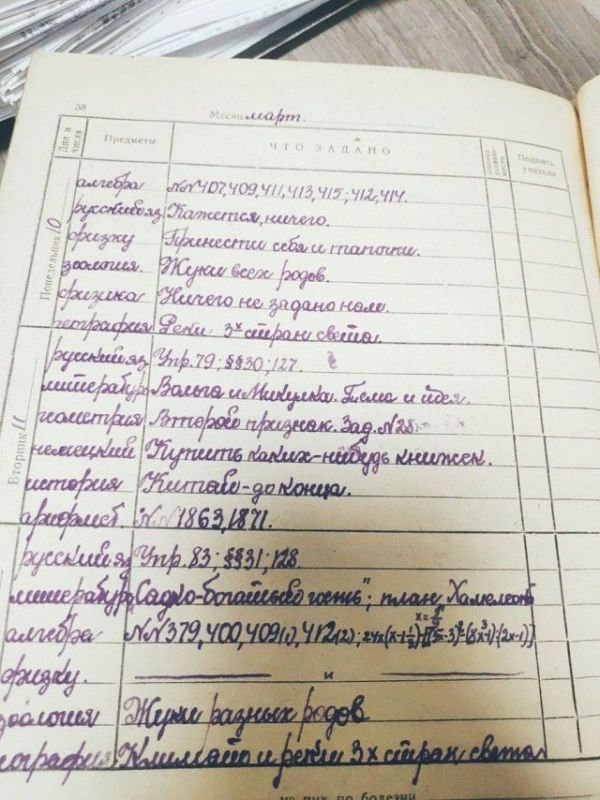 58
Месяц март.
Дни и числа Предметы ЧТО ЗАДАНО Подпись учителя
Понедельник 10
алгебра №№407,409,411,413,415;412,414.
русский яз Кажется, ничего.
физку Принести себя и тапочки.
зоология. Жуки всех родов.
физика Ничего не задано нам.
география Реки 3х стран света.
Вторник 11
русский яз Упр. 79; §§30; 127.
литератур Вольга и Микулка. Тема и идея.
геометрия Второй признак. Зад. №28
немецкий Купить каких-нибудь книжек.
история Китай-до конца.
арифмет. №№1863,1871.
русский яз Упр. 83; §§31, 128.
литератур "Садко-богатый гость"; план Хамелеона
алгебра №№379,400,409(1), 412(2);
физку. и
зоология Жуки разных родов
география Климат и реки 3х стран света
них по болезни